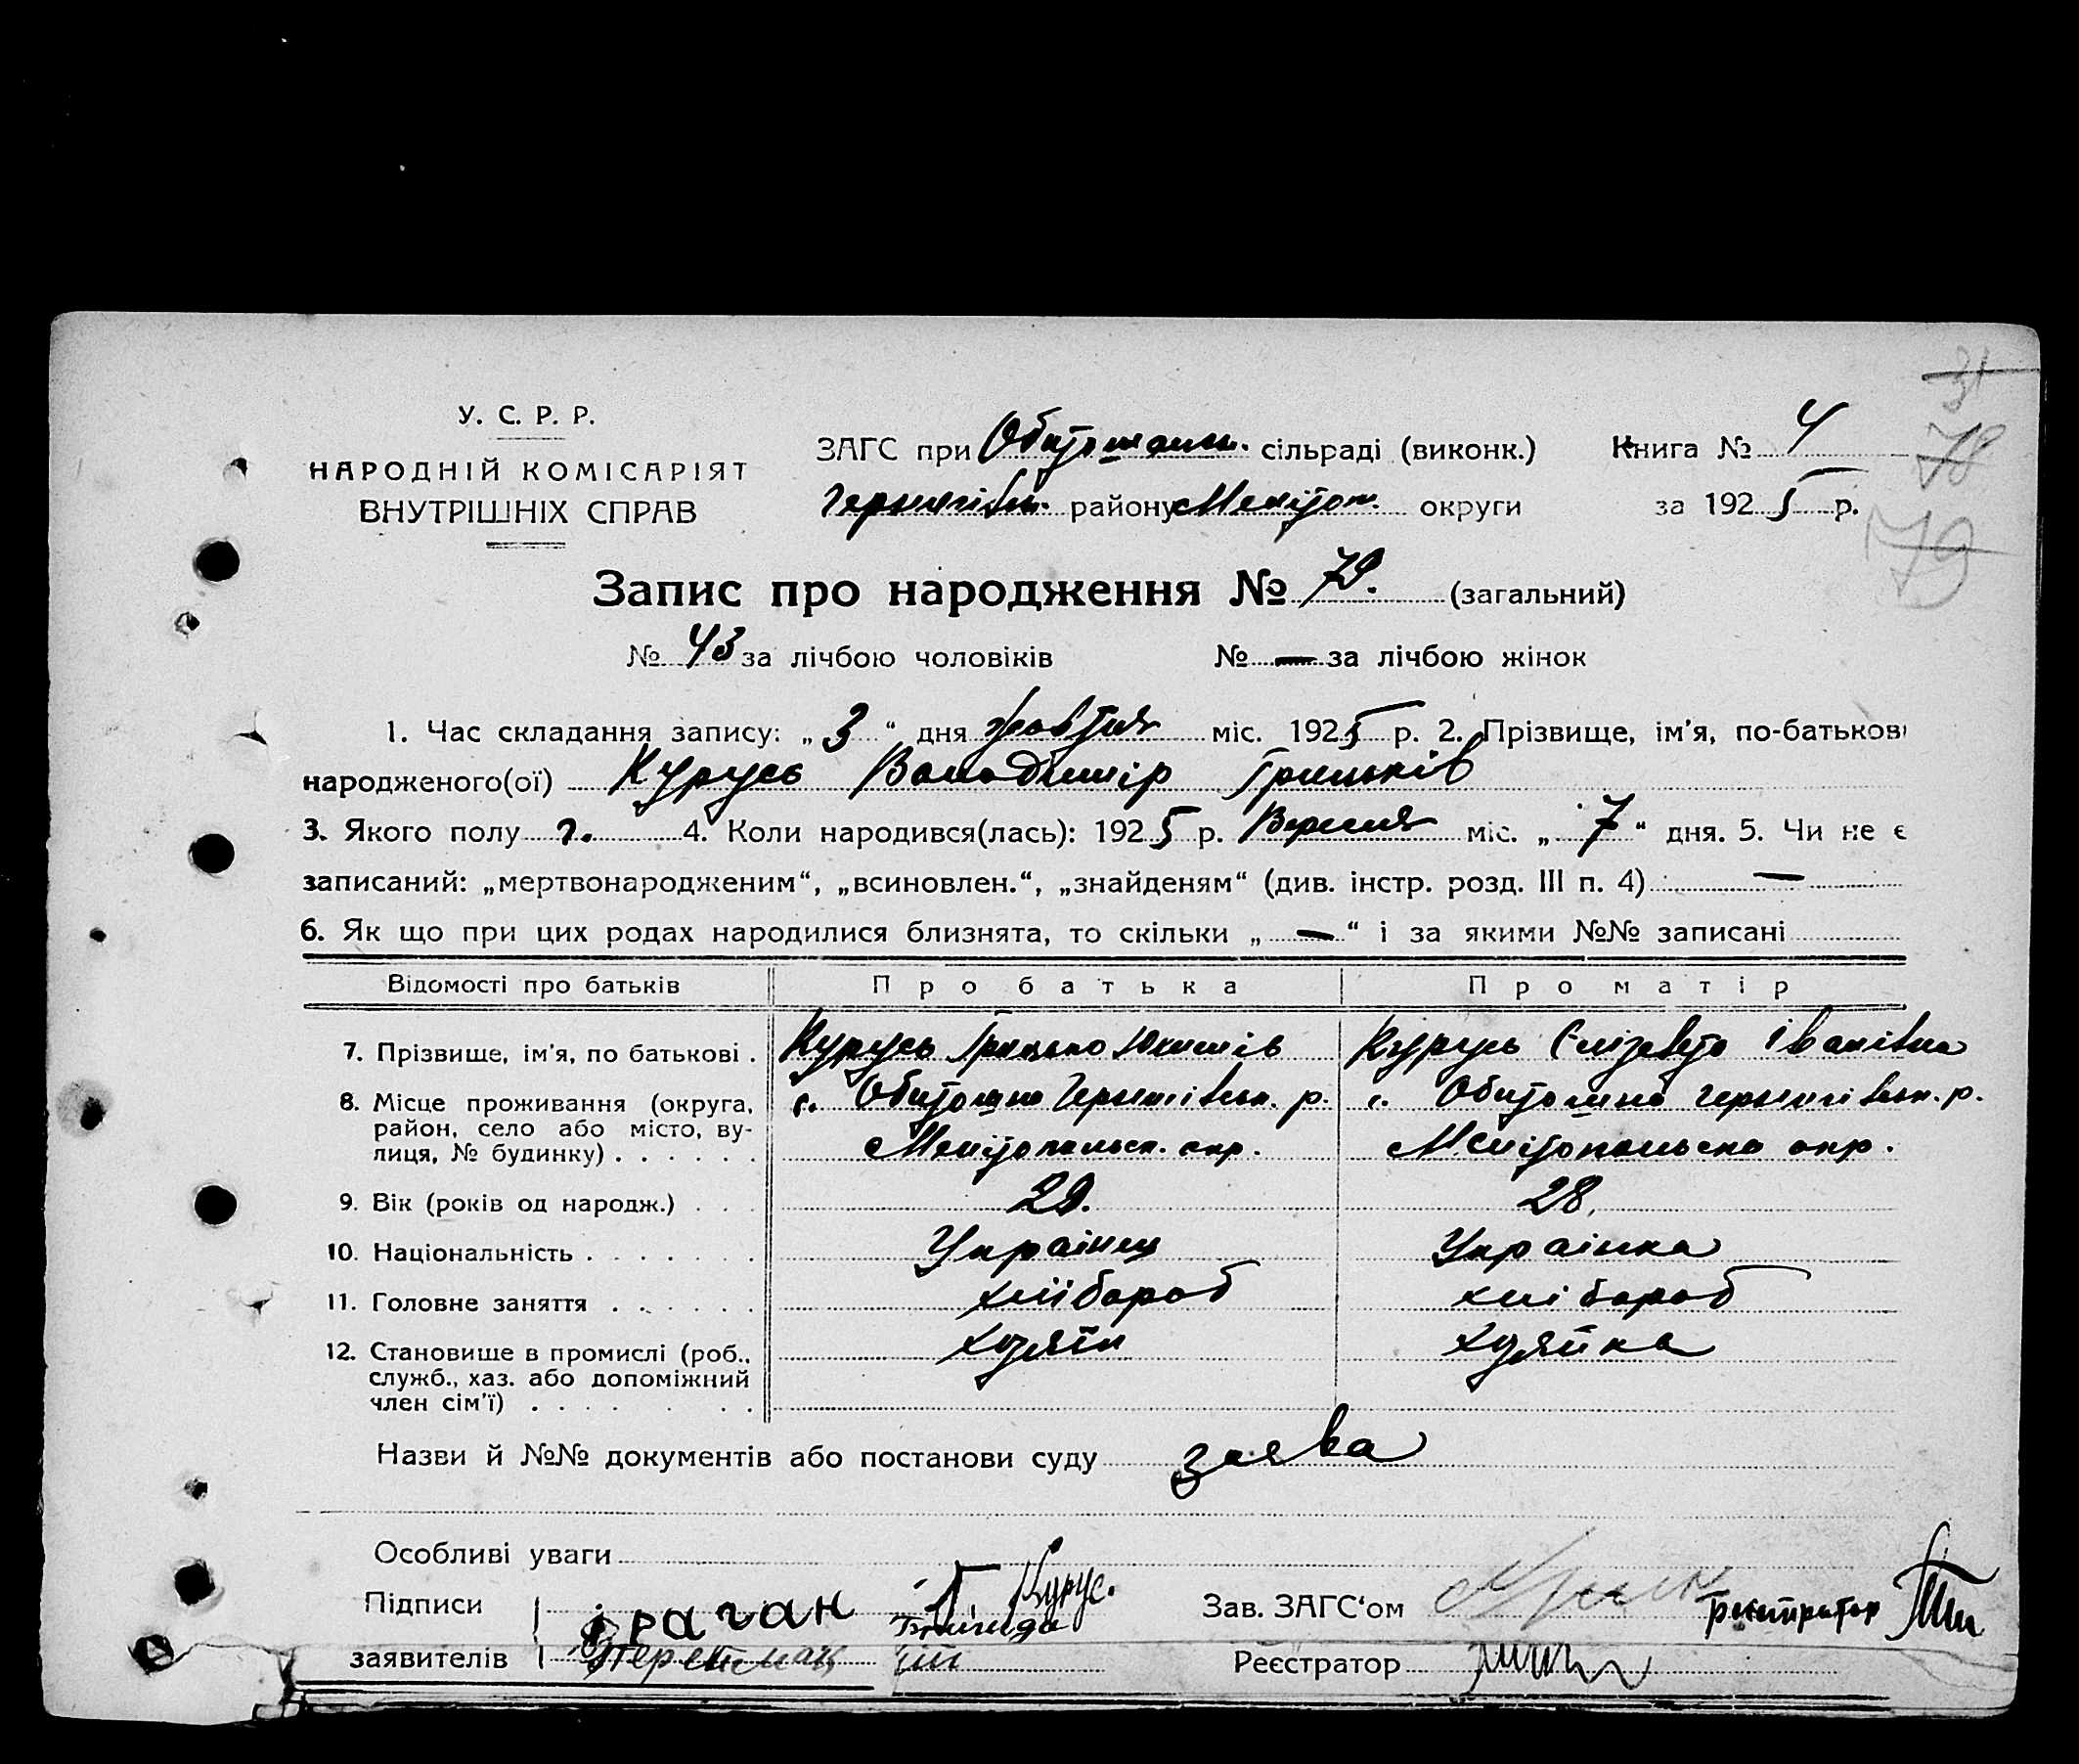 31
У. С. Р. Р.
НАРОДНІЙ КОМІСАРІЯТ
ВНУТРІШНІХ СПРАВ
ЗАГС при Обитошанск. сільраді (виконк.) Книга № 4
78
Чернигівськ. району Мелітоп. округи за 1925 р.
79
Запис про народження № 79. (загальний)
№ 43 за лічбою чоловіків № — за лічбою жінок
1. Час складання запису: „ 3 “ дня жовтня міс. 1925 р. 2. Прізвище, ім'я, по-батькові
народженого(ої) Курусь Володимір Грицьків
3. Якого полу ч. 4. Коли народився(лась): 1925 р. Вересня міс. „ 7 “ дня. 5. Чи не є
записаний: „мертвонародженим“, „всиновлен.“, „знайденям“ (див. інстр. розд. III п. 4) —
6. Як що при цих родах народилися близнята, то скільки „ — “ і за якими №№ записані
Відомості про батьків Про батька Про матір
7. Прізвище, ім'я, по батькові . Курусь Грицько Юхимів Курусь Єлізевета Іванівна
8. Місце проживання (округа, с. Обитошно Чернигівськ. р. с. Обитошно Чернигівськ. р.
район, село або місто, ву-
лиця, № будинку) . . . . . . Мелітопольск. окр. Мелітопольска окр.
9. Вік (років од народж.) . . . 29. 28.
10. Національність . . . . . . . Українец Українка
11. Головне заняття . . . . . . хлібороб хлібороб
12. Становище в промислі (роб., хозяїн хозяйка
служб., хаз. або допоміжний
член сім'ї) . . . . . . .
Назви й №№ документів або постанови суду заява
Особливі уваги
Підписи Г. Курус. Зав. ЗАГС‘ом реєстратор
заявителів Реєстратор